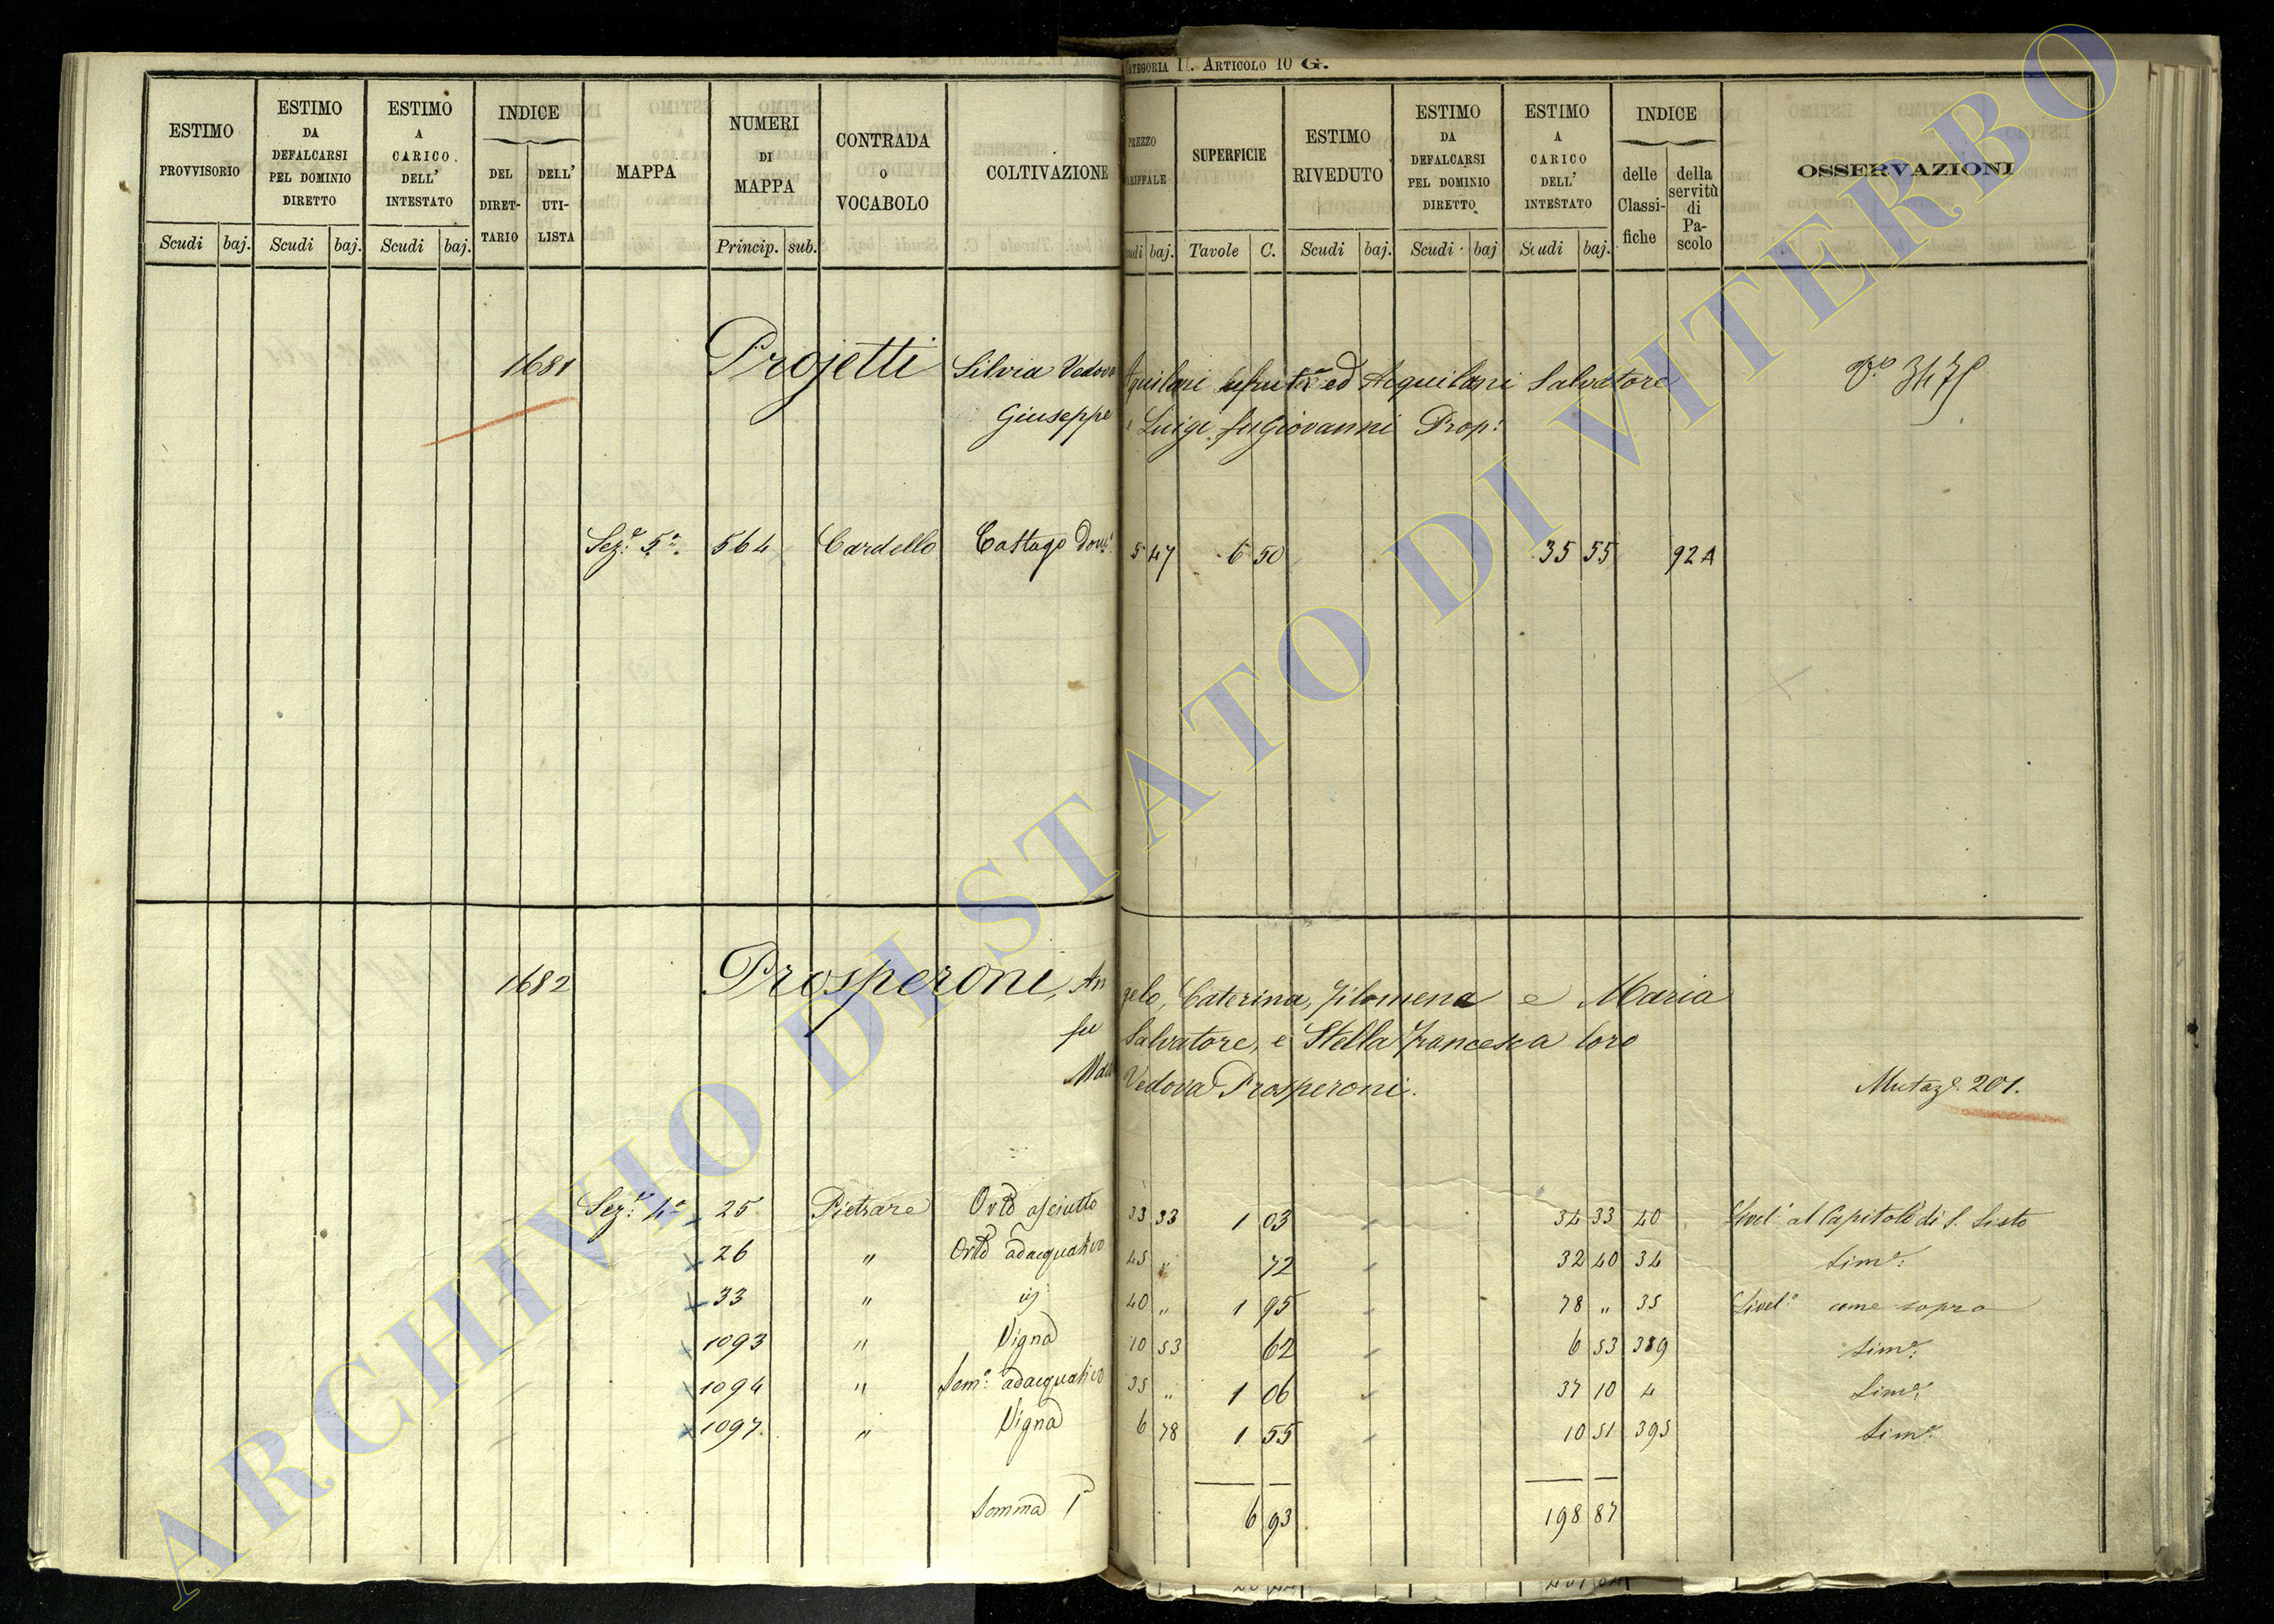 CATEGORIA II. ARTICOLO 10 G.
ESTIMO PROVVISORIO Scudi baj.
ESTIMO DA DEFALCARSI PEL DOMINIO DIRETTO Scudi baj.
ESTIMO A CARICO DELL' INTESTATO Scudi baj.
INDICE DEL DIRET-TARIO DELL' UTI-LISTA
MAPPA
NUMERI DI MAPPA Princip. sub.
CONTRADA O VOCABOLO
COLTIVAZIONE
PREZZO TARIFFALE Scudi baj.
SUPERFICIE Tavole C.
ESTIMO RIVEDUTO Scudi baj.
ESTIMO DA DEFALCARSI PEL DOMINIO DIRETTO Scudi baj
ESTIMO A CARICO DELL' INTESTATO Scudi baj.
INDICE delle Classi-fiche della servitù di Pa-scolo
OSSERVAZIONI
1681 Projetti Silvia Vedova Aquilani usufrutta ed Aquilani Salvatore
Giuseppe e Luigi fu Giovanni Prop:
Sez:e 5a. 564 Cardello Castag Dom: 5 47 6 50 35 55 92 A
1682 Prosperoni, Angelo, Caterina, Filomena e Maria
fu Salvatore, e Stella Francesca loro
Mad Vedova Prosperoni.
Mutaze. 201.
Sez:e 4a 25 Pietrare Orto asciutto 33 33 1 03 34 33 40 Livel: al Capitolo di S. Sisto
26 " Orto adacquativo 45 " 72 32 40 34 Sime:
33 " id 40 " 1 95 78 " 35 Livel:o come sopra
1093 " Vigna 10 53 62 6 53 389 Sime:
1094 " Sem:o adacquativo 35 " 1 06 37 10 4 Sime:
1097 " Vigna 6 78 1 55 10 51 395 Sime:
Somma 6 93 198 87
ARCHIVIO DI STATO DI VITERBO